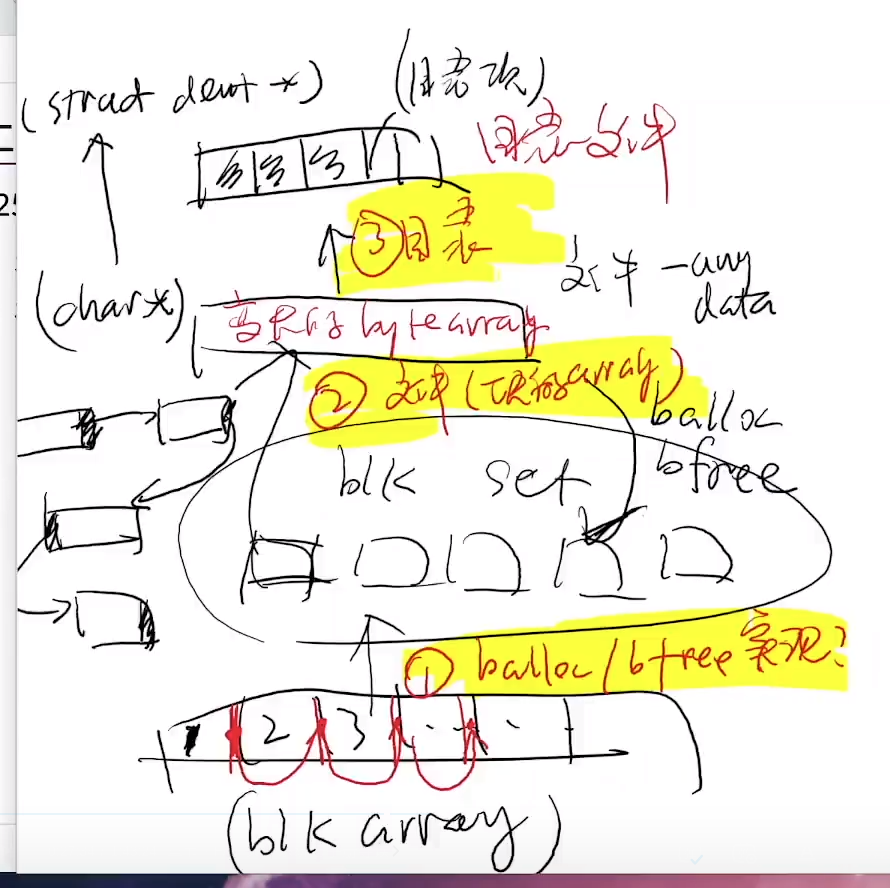 (struct dent *)
(目录项)
目录文件
25
③目录
文件 -any
data
(char *)
变长的 byte array
② 文件 (变长的array)
balloc
bfree
blk set
① balloc/bfree 实现?
1 2 3 . . .
(blk array)